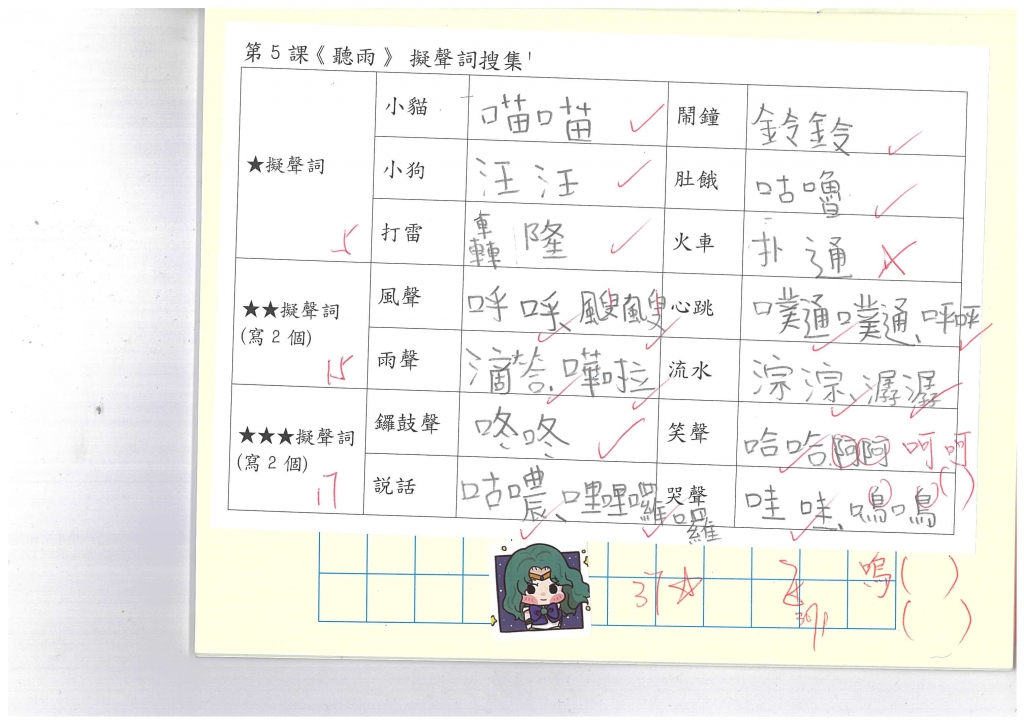 第5課《聽雨》擬聲詞搜集
★擬聲詞 5
小貓 喵喵 ✓ 鬧鐘 鈴鈴 ✓
小狗 汪汪 ✓ 肚餓 咕嚕 ✓
打雷 轟隆 ✓ 火車 扑通 ✗
★★擬聲詞
(寫2個) 15
風聲 呼呼、颼颼 心跳 噗通噗通、呯呯
雨聲 滴答、嘩啦 流水 淙淙、潺潺
★★★擬聲詞
(寫2個) 17
鑼鼓聲 咚咚 ✓ 笑聲 哈哈、啊啊 呵呵
說話 咕噥、嗶哩囉囉 哭聲 哇哇、鳴鳴 ( )
37☆ 嗚( )
( )